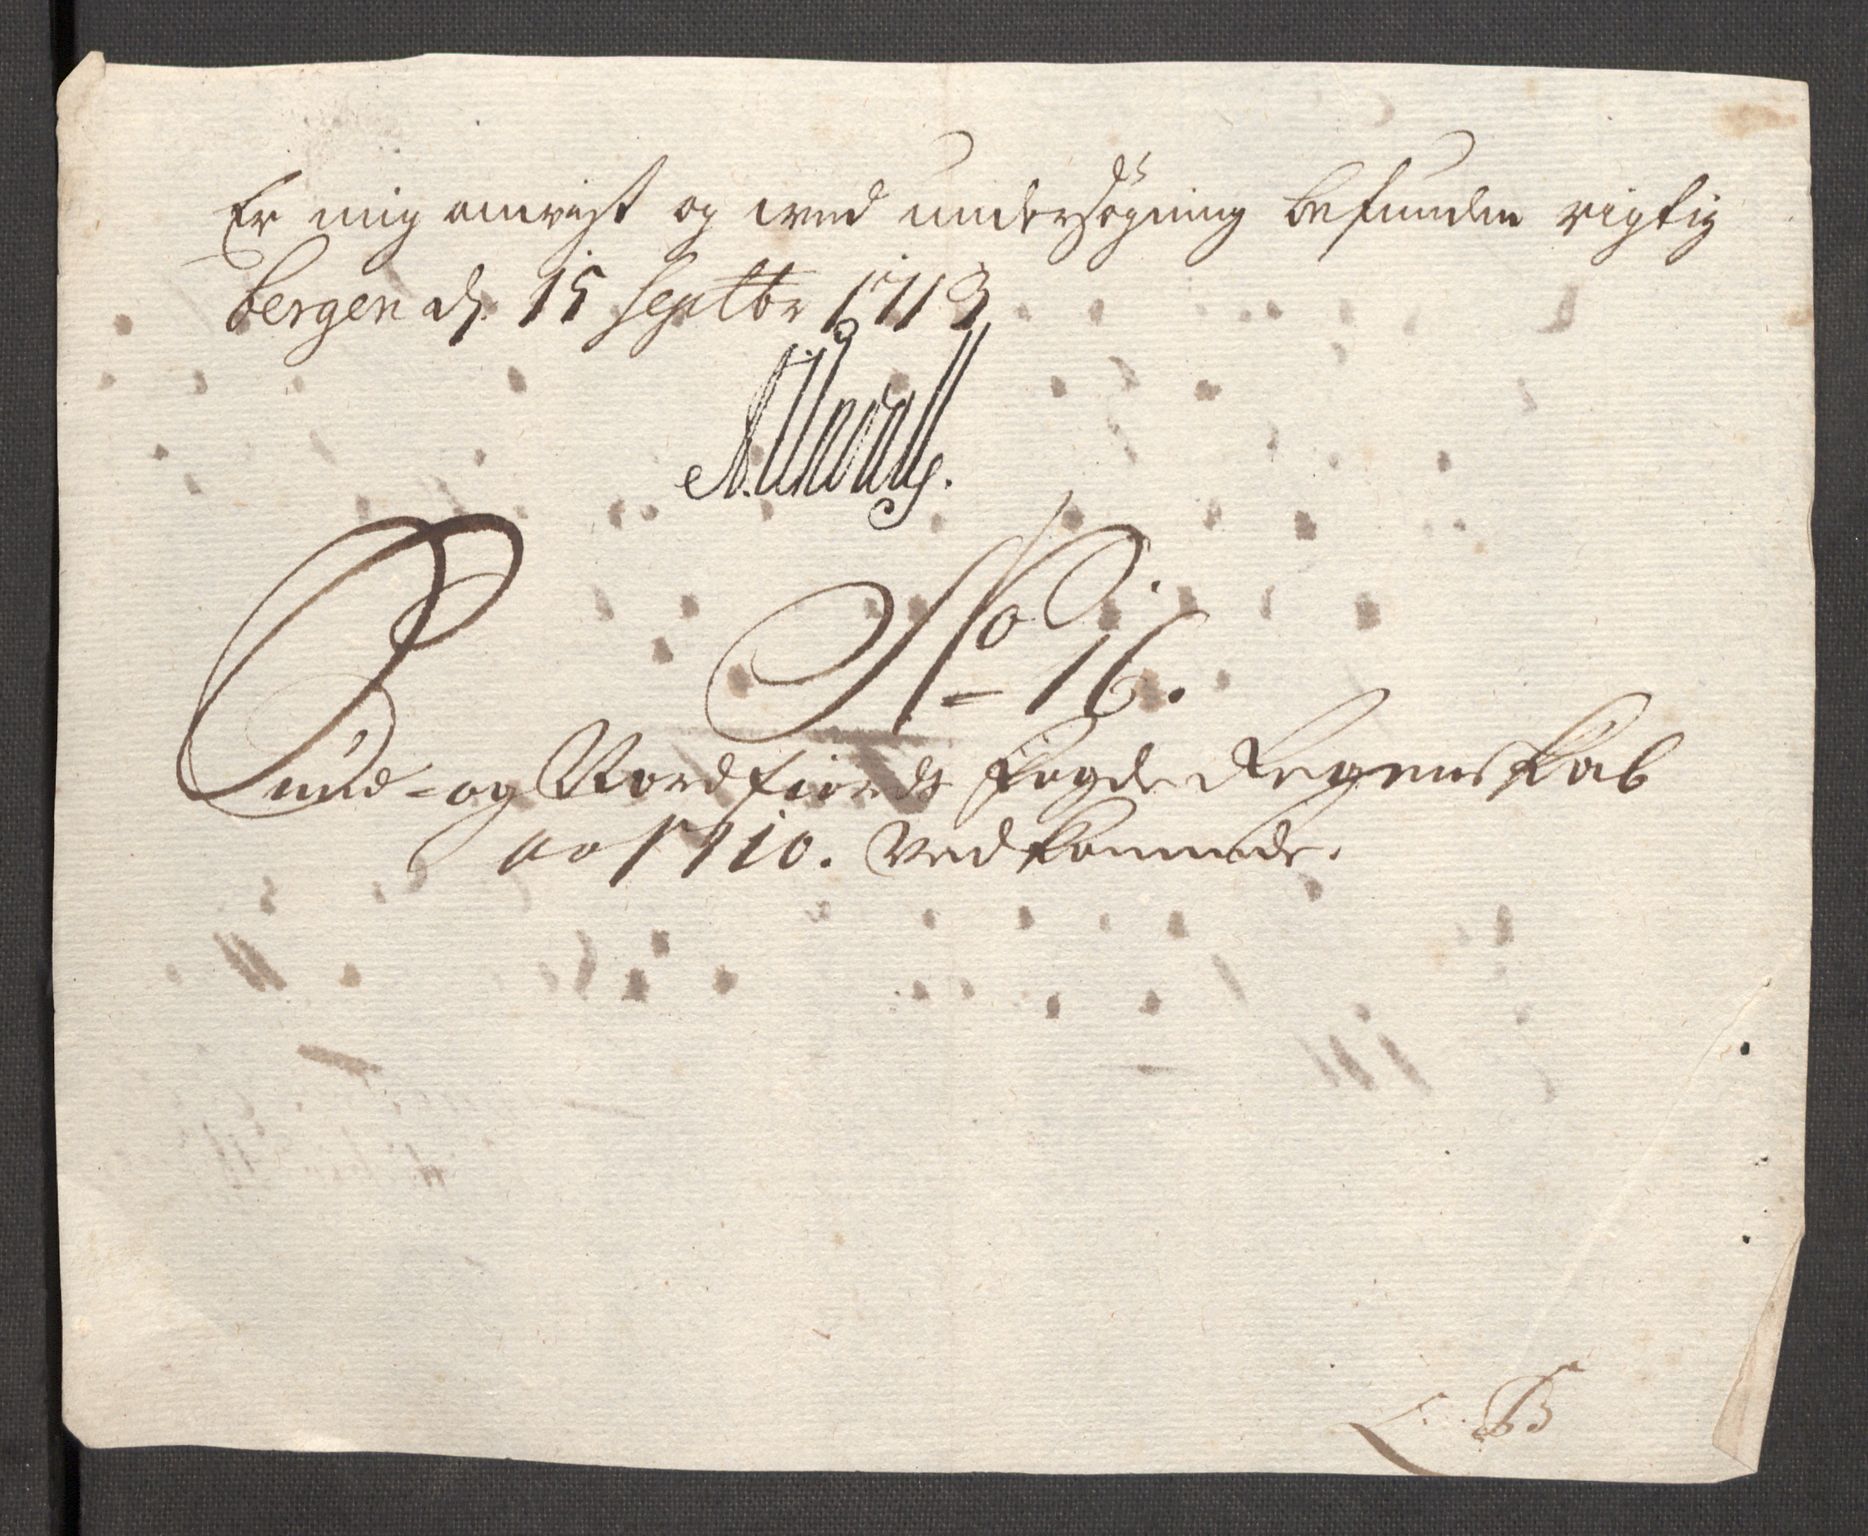 Er mig anvist og wed undersøgning befunden rigtig
Bergen d. 15 Septbr 1713
No 16.
Sund- og Nordfiords Fogderie Regenskab
Ao 1710. Vedkommende.
L. B